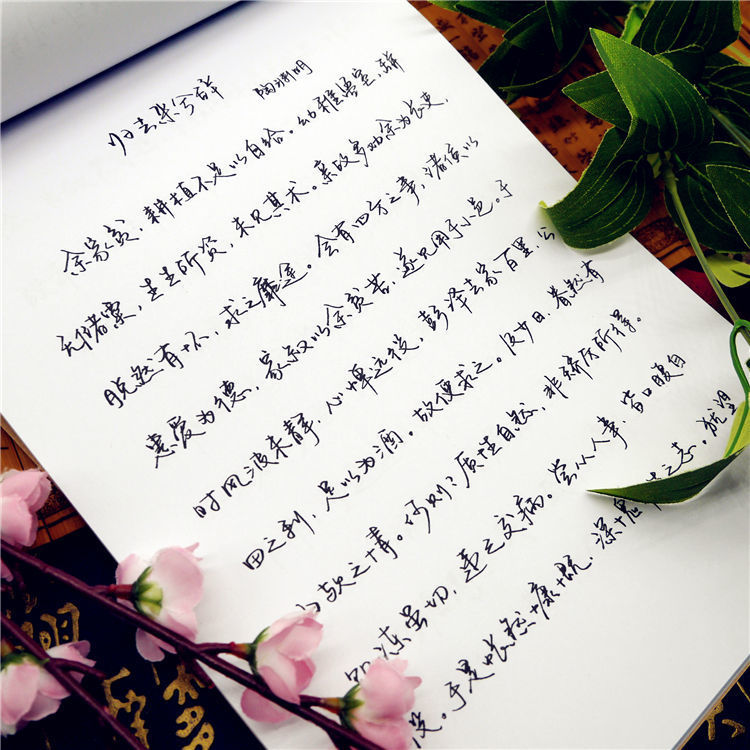 归去来兮辞 陶渊明
余家贫，耕植不足以自给。幼稚盈室，瓶
无储粟，生生所资，未见其术。亲故多劝余为长吏，
脱然有怀，求之靡途。会有四方之事，诸侯以
惠爱为德，家叔以余贫苦，遂见用于小邑。于
时风波未静，心惮远役，彭泽去家百里，公
田之利，足以为酒。故便求之。及少日，眷然有
欤之情。何则？质性自然，非矫厉所得。
饥冻虽切，违己交病。尝从人事，皆口腹自
役。于是怅然慷慨，深愧之志。犹望